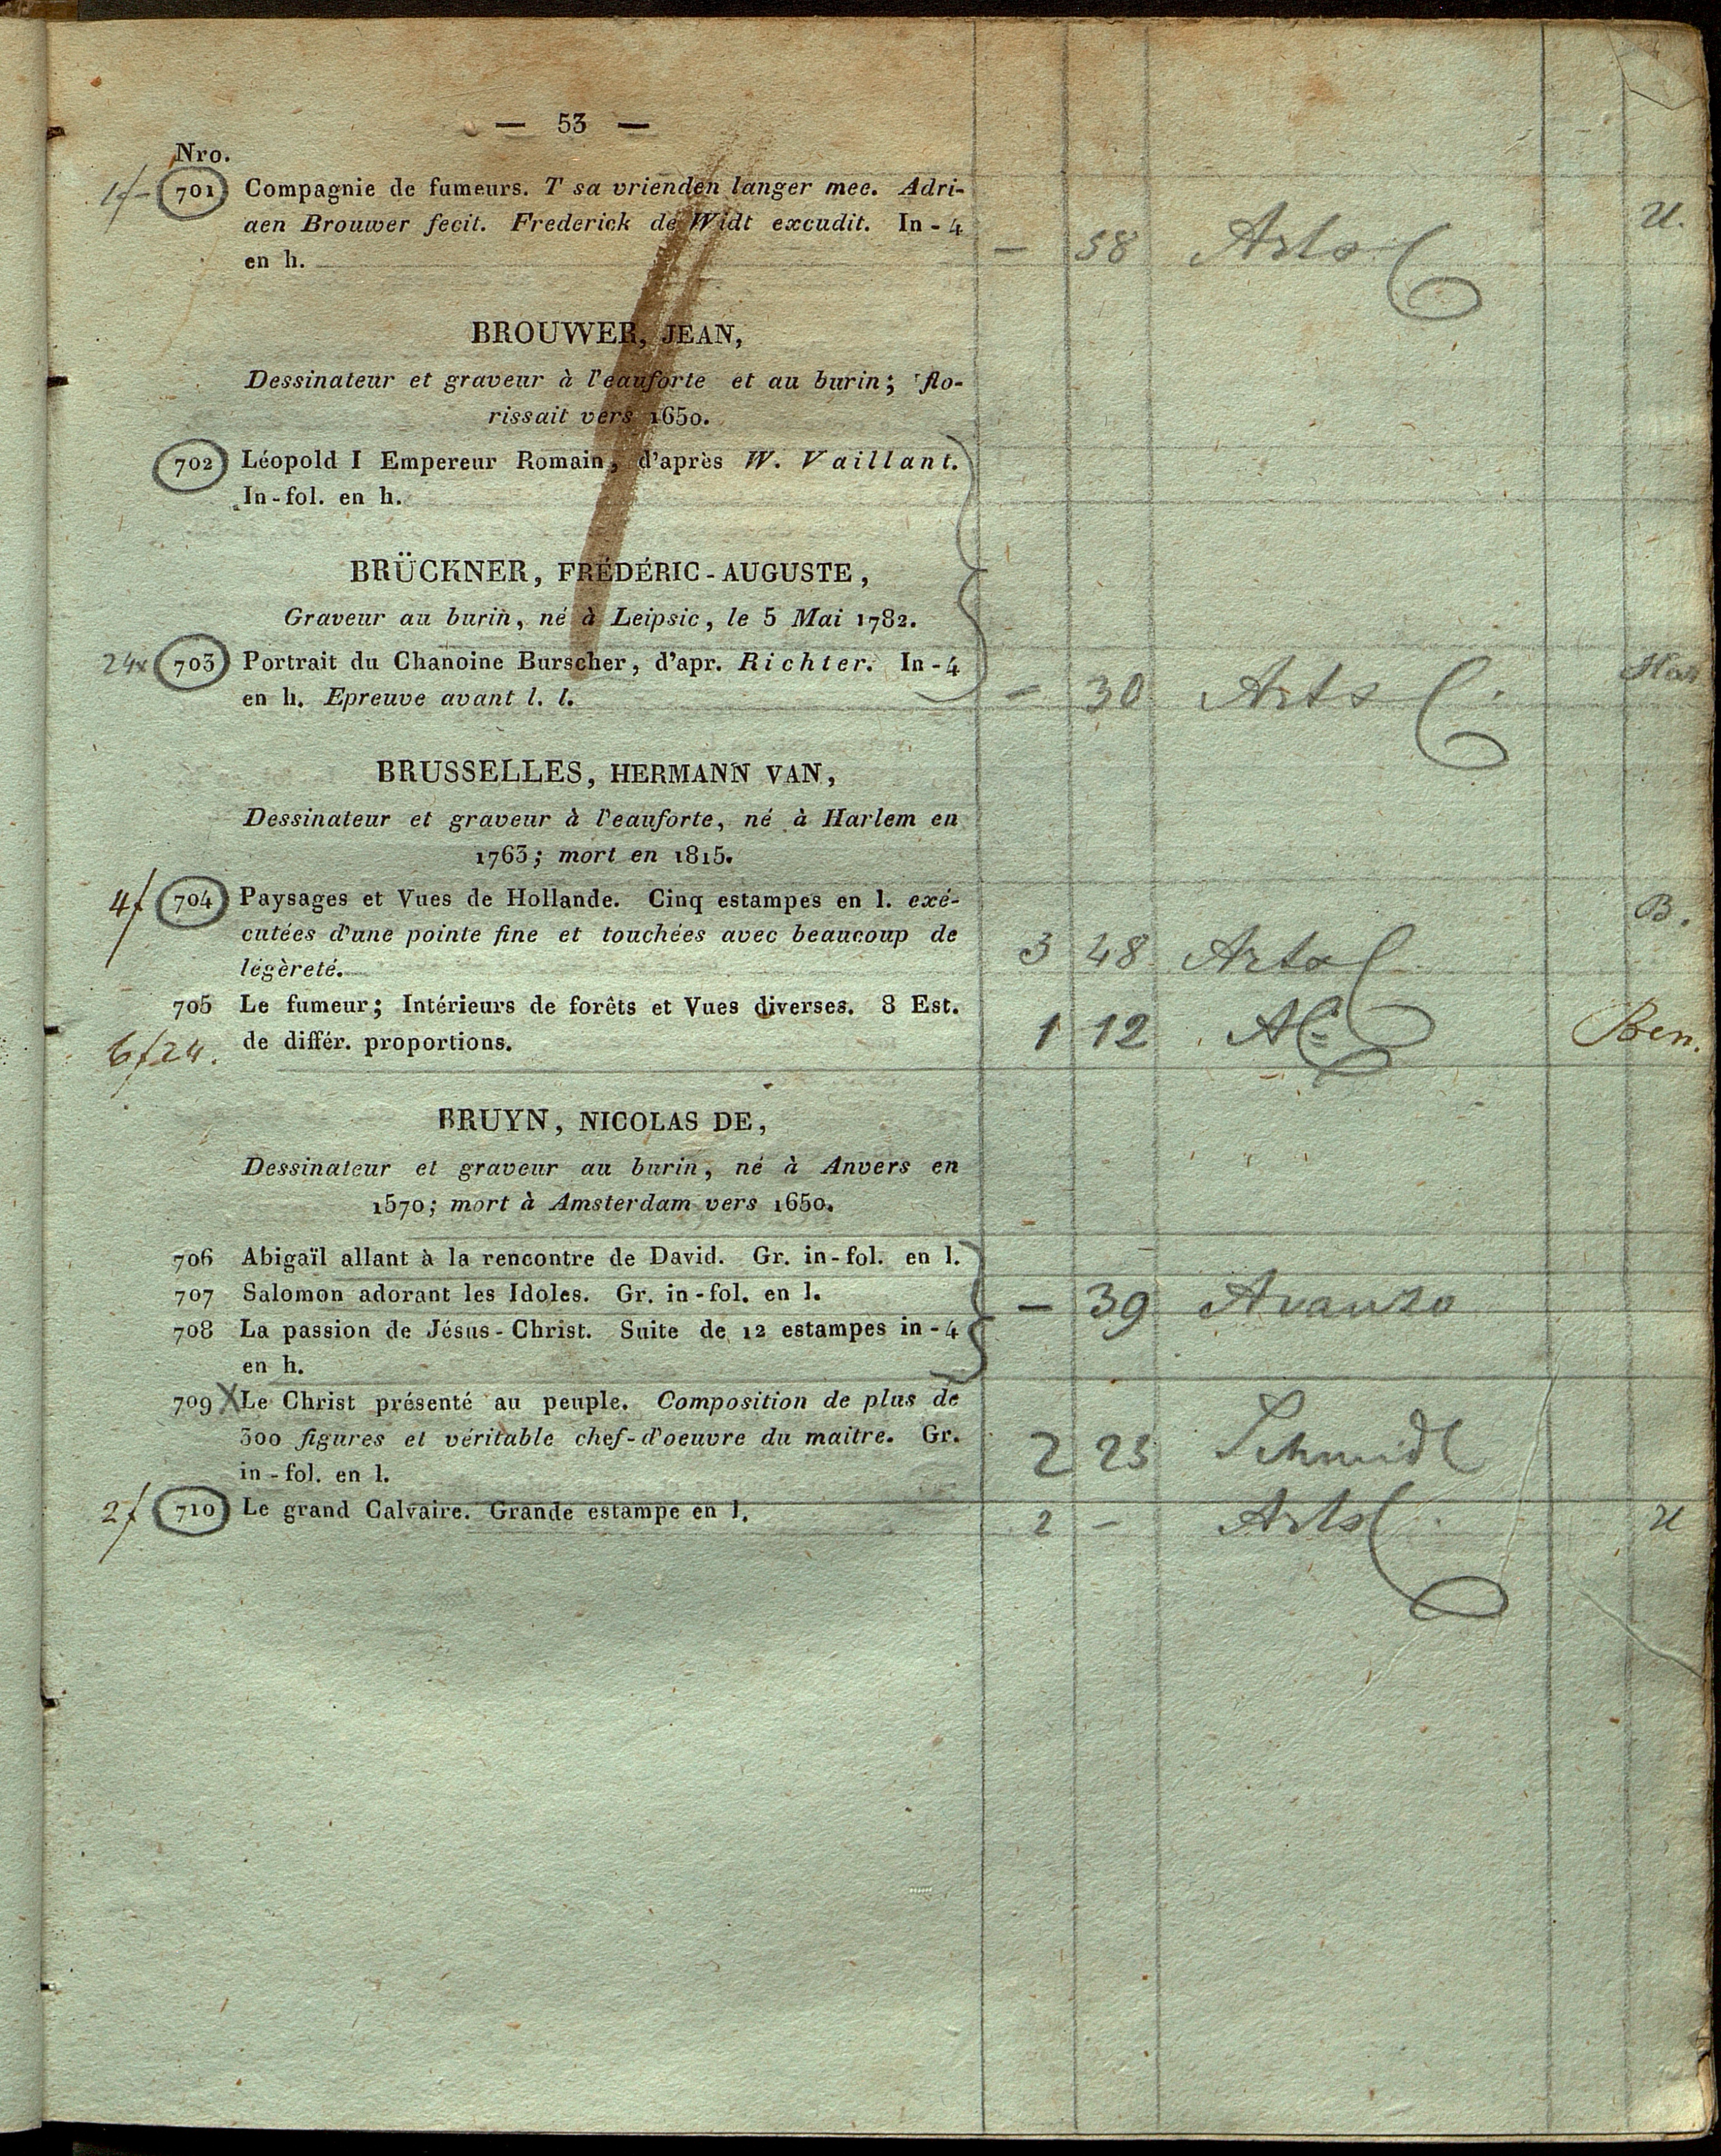 — 53 —
Nro.
1f- 701 Compagnie de fumeurs. T sa vrienden langer mee. Adri-
aen Brouwer fecit. Frederick de Widt excudit. In-4
en h.
— 58 Arts U.
BROUWER, JEAN,
Dessinateur et graveur à l'eauforte et au burin; flo-
rissait vers 1650.
702 Léopold I Empereur Romain, d'après W. Vaillant.
In-fol. en h.
BRÜCKNER, FRÉDÉRIC-AUGUSTE,
Graveur au burin, né à Leipsic, le 5 Mai 1782.
24x 703 Portrait du Chanoine Burscher, d'apr. Richter. In-4
en h. Epreuve avant l. l.
— 30 Arts
BRUSSELLES, HERMANN VAN,
Dessinateur et graveur à l'eauforte, né à Harlem en
1763; mort en 1815.
4f 704 Paysages et Vues de Hollande. Cinq estampes en l. exé-
cutées d'une pointe fine et touchées avec beaucoup de
légèreté.
3 48 Arts B.
705 Le fumeur; Intérieurs de forêts et Vues diverses. 8 Est.
6f24. de différ. proportions.
1 12 Ben.
BRUYN, NICOLAS DE,
Dessinateur et graveur au burin, né à Anvers en
1570; mort à Amsterdam vers 1650.
706 Abigaïl allant à la rencontre de David. Gr. in-fol. en l.
707 Salomon adorant les Idoles. Gr. in-fol. en l.
— 39 Avanzo
708 La passion de Jésus-Christ. Suite de 12 estampes in-4
en h.
709 X Le Christ présenté au peuple. Composition de plus de
300 figures et véritable chef-d'oeuvre du maitre. Gr.
in-fol. en l.
2 25 Schmidt
2f 710 Le grand Calvaire. Grande estampe en l.
2 — Arts U